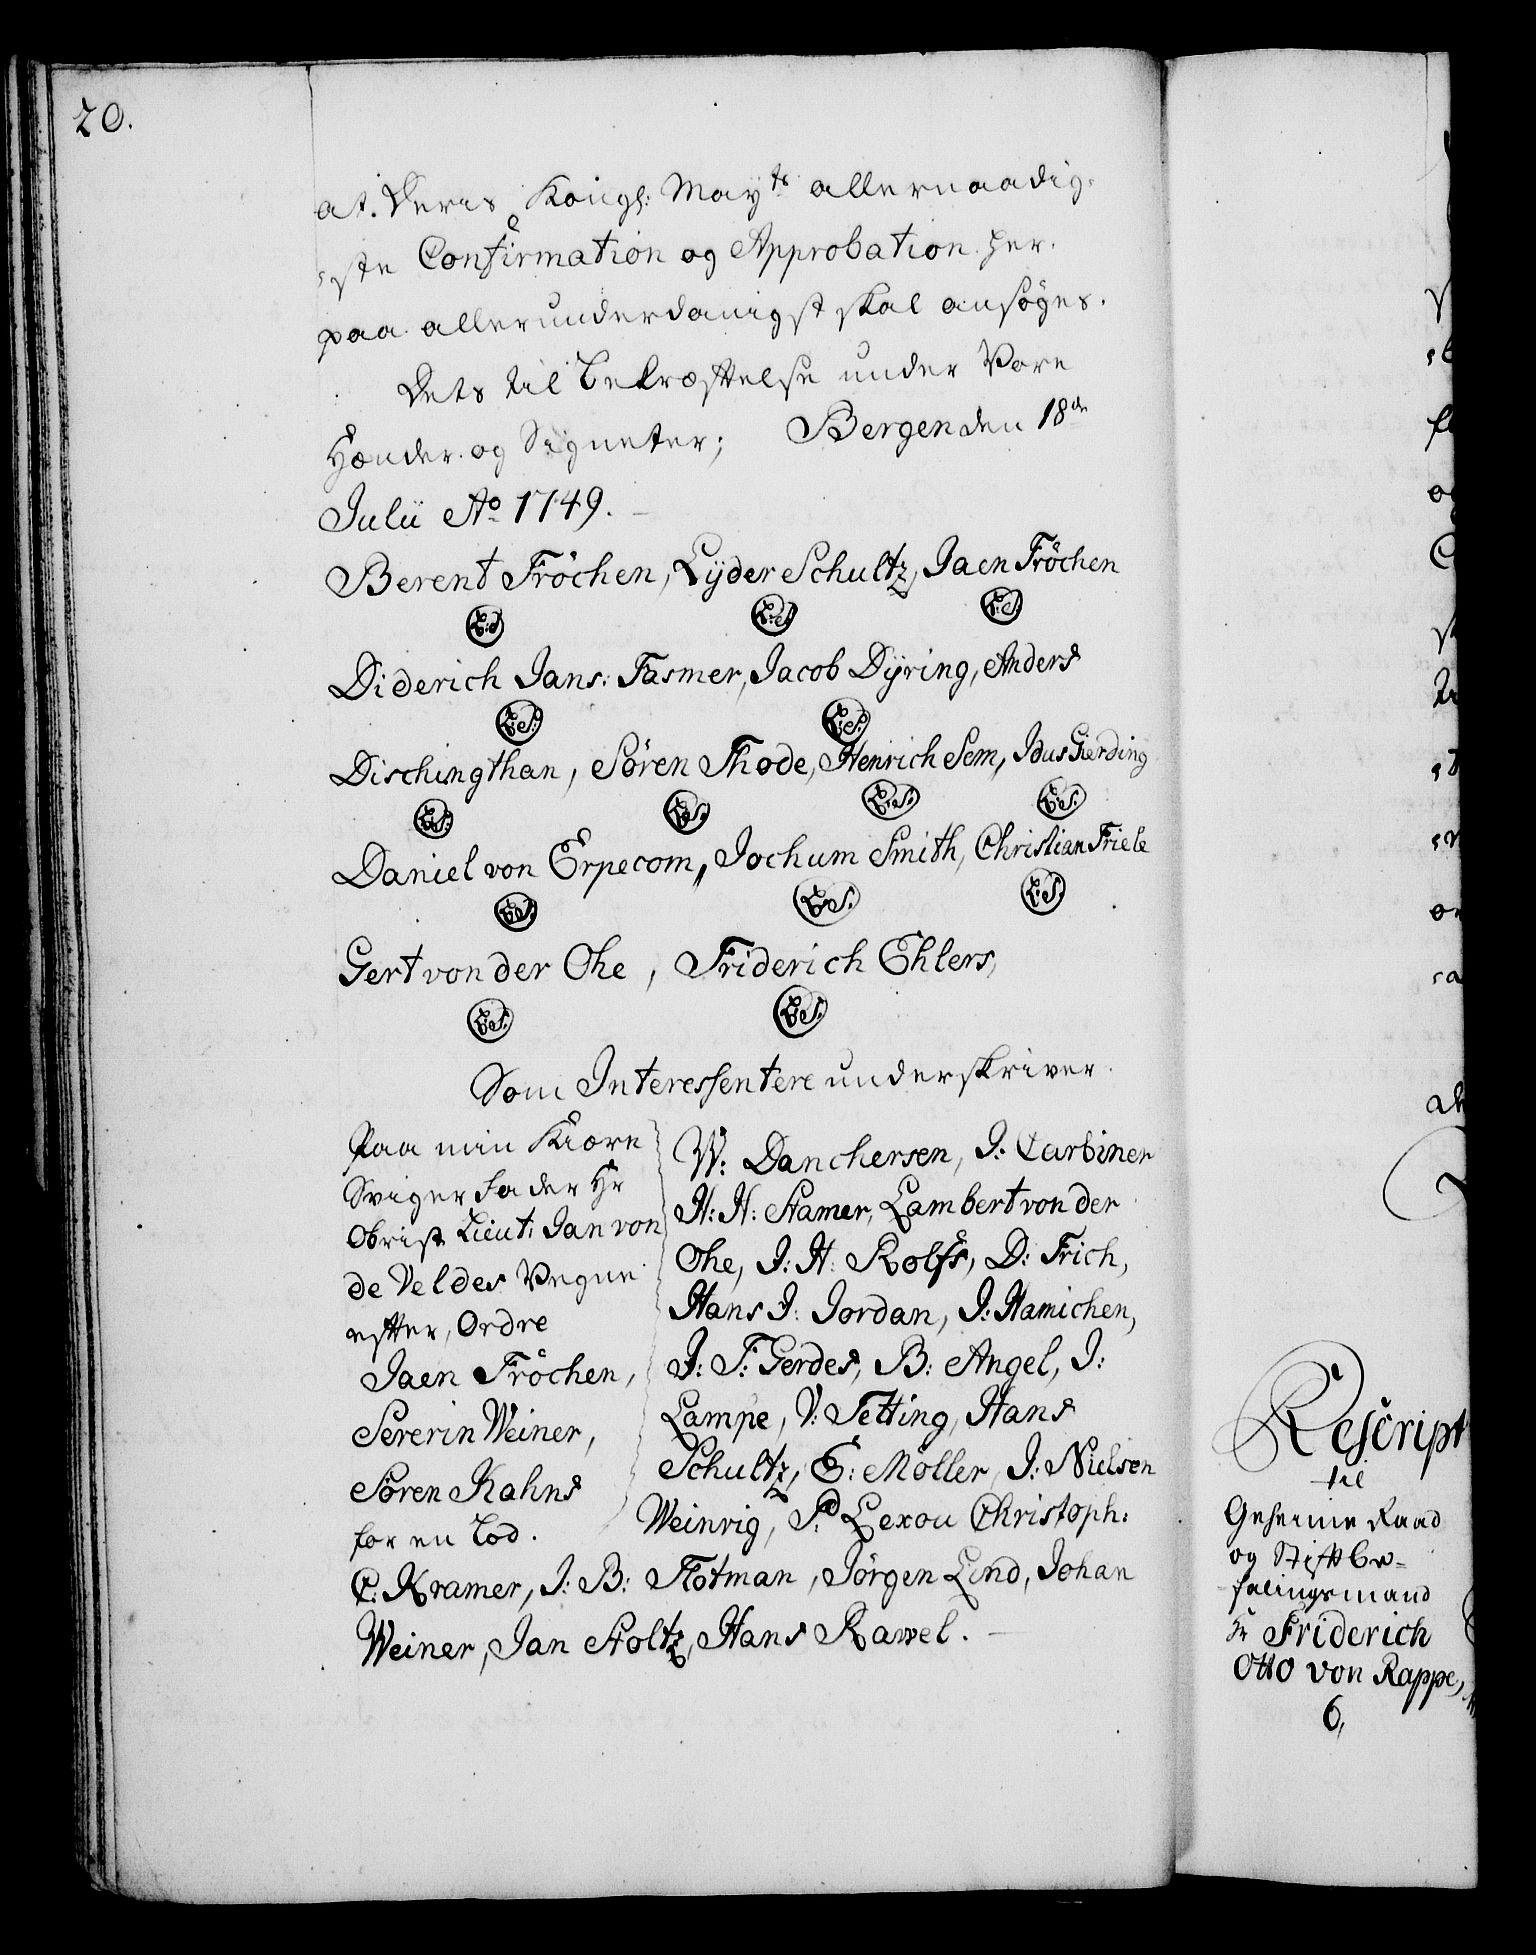 20.
at. Deris Kongl: Mayts allernaadig-
ste Confirmation og Approbation her-
paa allerunderdanigst skal ansøges.
Dets til bekræfftelse under Vore
Hænder og Signeter; Bergen den 18de
Julii Ao 1749.
Berent Fröchen, Lÿder Schultz, Jaen Fröchen
L:S. L:S. L:S.
Diderich Jans: Fasmer, Jacob Dÿring, Anders
L:S: L:S.
Dischingthan, Sören Thode, Henrich Sem, Idus Gierding
L:S: L:S. L:S: L:S:
Daniel von Erpecom, Jochum Smith, Christian Friele
L:S. L:S. L:S.
Gert von der Ohe, Friderich Ehlers,
L:S. L:S:
Som Interessentere underskriver.
Paa min Kiære
Sviger Fader Hr
Obrist Lieut: Jan von
de Veldes Vegne
effter, Ordre
Jaen Fröchen,
Sererin Weiner,
Sören Kahns
for en Lod.
W: Danchersen, J: Carbiner
H: H: Stamer, Lambert von der
Ohe, J: H: Rolfs, D: Frich,
Hans J: Jordan, J: Hamichen,
J: F: Gerdes, B: Angel, J:
Lampe, V: Tetting, Hans
Schultz, E: Möller, J: Nielsen
Weinrig, P: Lexou Christoph:
C: Kramer, J: B: Flotman, Jörgen Lind, Johan
Weiner, Jan Stoltz, Hans Rawel.
Rescript
til
Geheime Raad
og Stiftbe-
falingsmand
Hr Friderich
Otto von Rappe,
6,